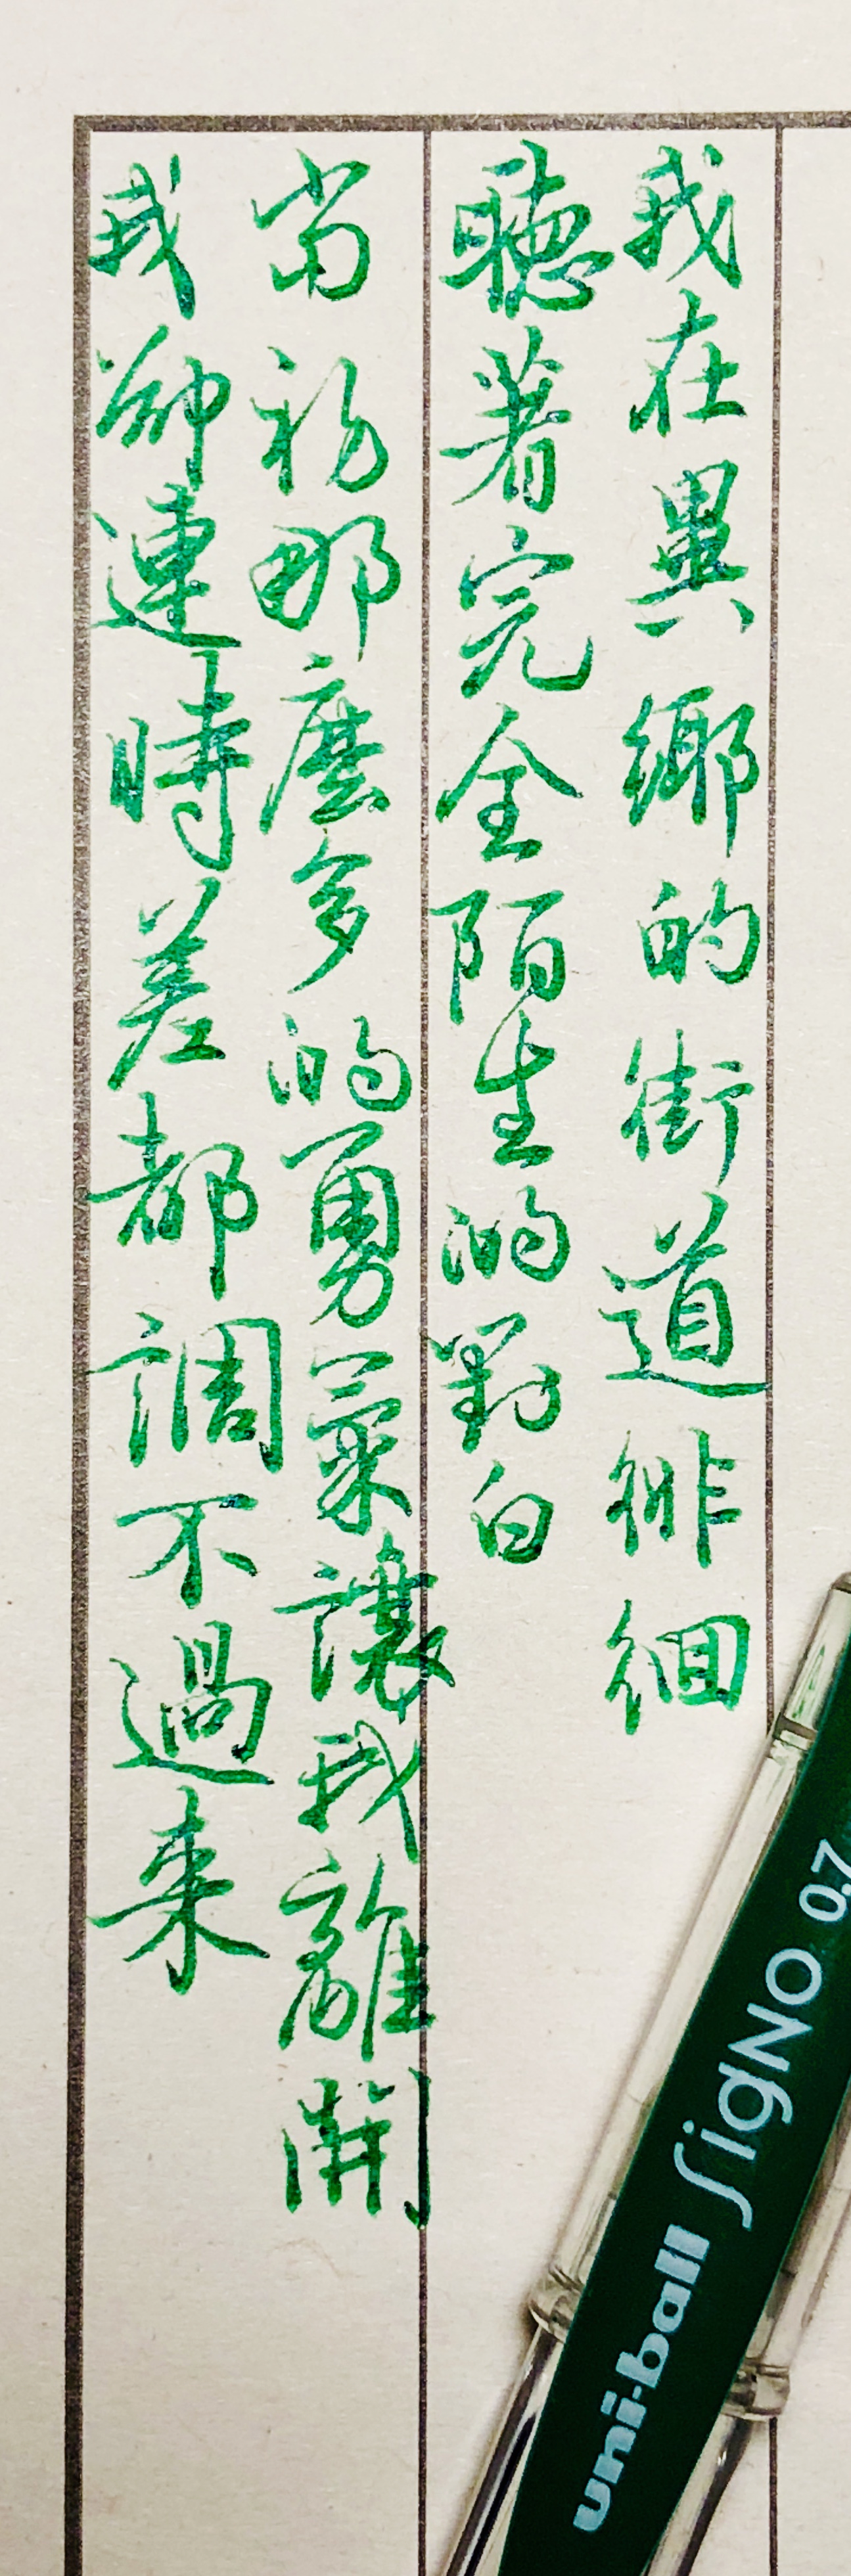 我在異鄉的街道徘徊
聽著完全陌生的對白
當初那麼多的勇氣讓我離開
我卻連時差都調不過来
uni-ball SigNO 0.7